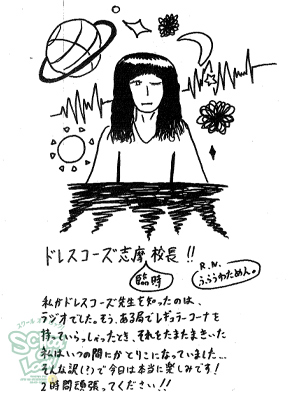 ドレスコーズ志摩校長!!
臨時
R.N.
ふらわためん。
私がドレスコーズ先生を知ったのは、
ラジオでした。そう、ある局でレギュラーコーナーを
持っていらっしゃったとき、それをたまたまきいた
私はいつの間にかとりこになっていました…
そんな訳(!?)で今日は本当に楽しみです!
2時間頑張ってください!!